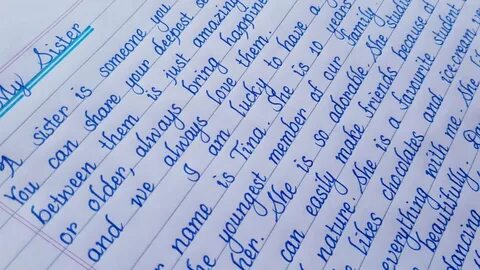 My Sister
A sister is someone you
You can share your deepest
between them is just amazing
or older, always bring happine
and we always love them.
I am lucky to have a
name is Tina. She is 10 years
youngest member of our family.
her. She is so adorable. She studi
can easily make friends because of
nature. She is a favourite student
likes chocolates and ice cream
everything with me. She
beautifully.
dancing